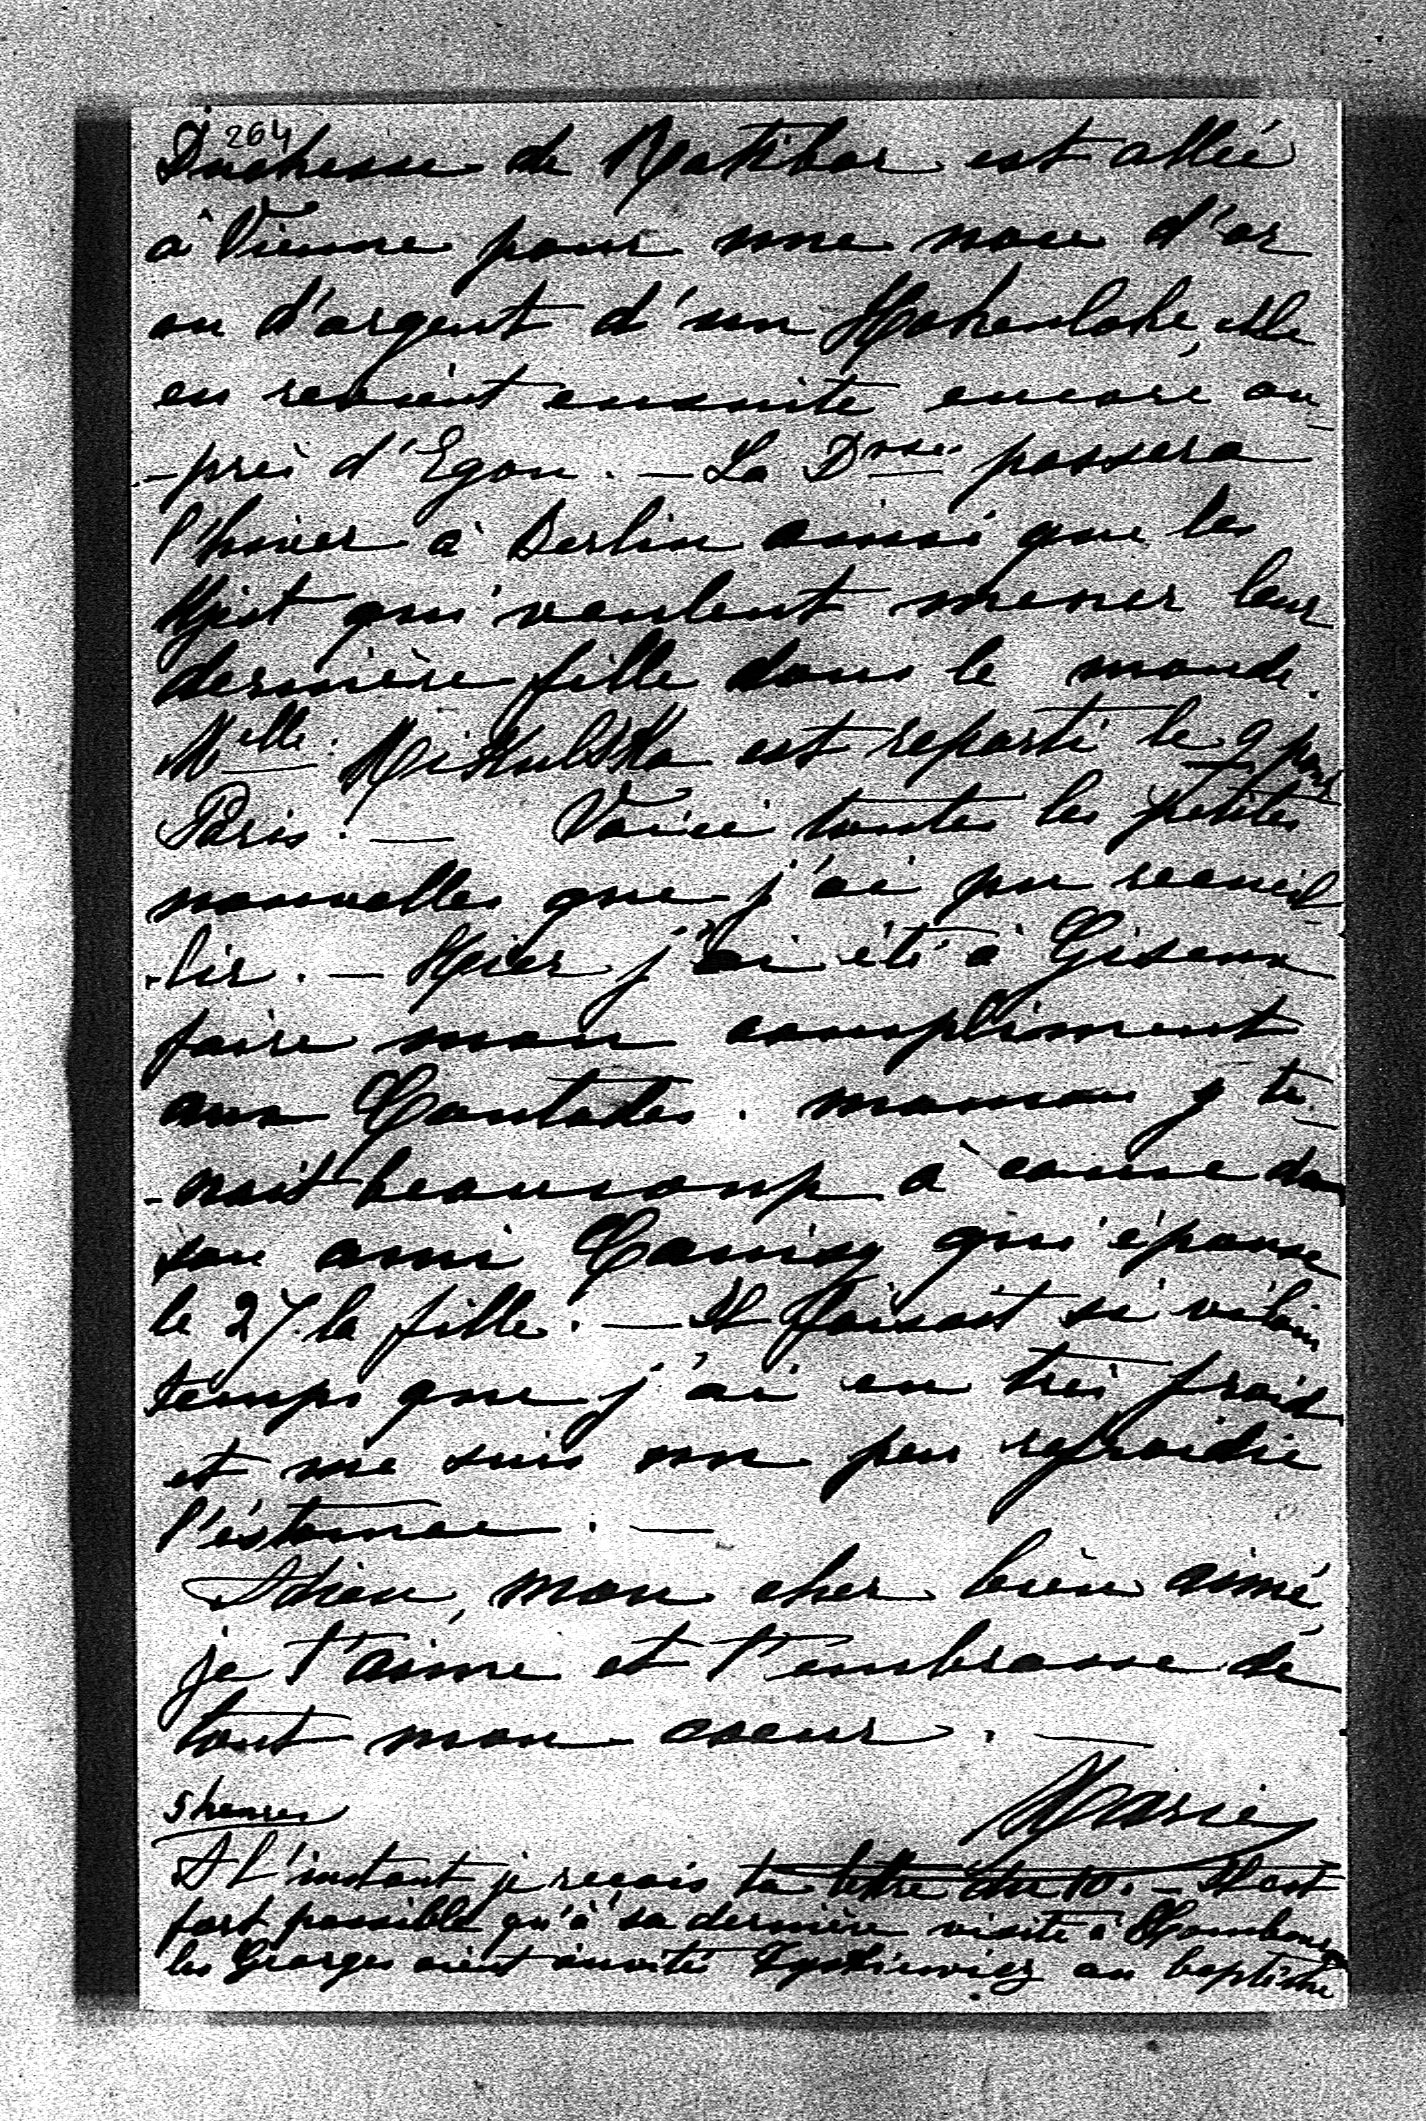 264
Duchesse de Ratibor est allée
à Vienne pour une noce d'or
ou d'argent d'un Hohenlohe, elle
en revient ensuite encore au-
-près d'Egon. — La Dsse passera
l'hiver à Berlin ainsi que les
qui veulent mener leur
dernière fille dans le monde.
Melle Mikulska est reparti le 9 pour
Paris. — Voici toutes les petites
nouvelles que j'ai pu recueil-
-lir. — Hier j'ai été à Giseux
faire mon compliment
aux Contades. maman y te-
-nait beaucoup à cause de
son ami Canisy qui épouse
le 27 la fille. — Il faisait si vilain
temps que j'ai eu très froid
et me suis un peu refroidie
l'éstomac. —
Adieu, mon cher bien aimé,
je t'aime et t'embrasse de
tout mon coeur. —
Marie
5 heures
A l'instant je reçois ta lettre du 10. — Il est
fort possible qu'à sa dernière visite à Hombourg
les Georges aient invité Tyskiewicz au baptême